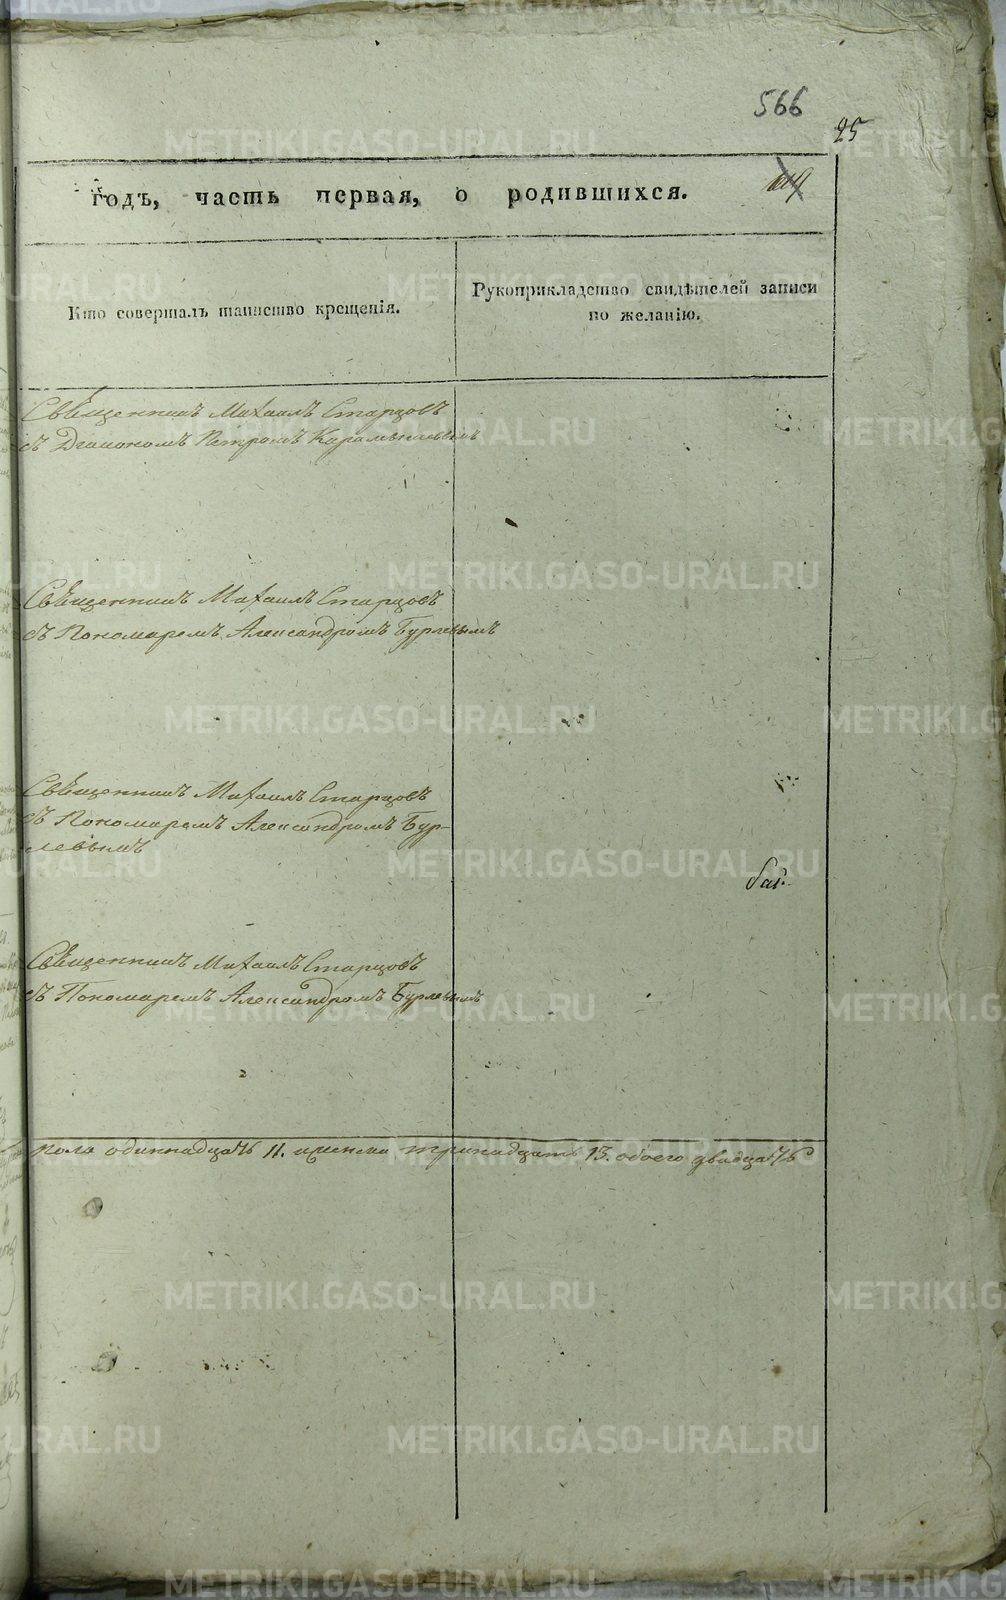 566
25
годъ, часть первая, о родившихся.
Кто совершалъ таинство крещенія.
Рукоприкладство свидѣтелей записи
по желанію.
Священникъ Михаилъ Старцовъ
съ Діакономъ Петромъ
Священникъ Михаилъ Старцовъ
съ Пономаремъ Александромъ Бурлевымъ
Священникъ Михаилъ Старцовъ
съ Пономаремъ Александромъ Бур-
левымъ
Священникъ Михаилъ Старцовъ
съ Пономаремъ Александромъ Бурлевымъ
пола одиннадцать 11. женска тринадцать 13. обоего двадцать
METRIKI.GASO-URAL.RU